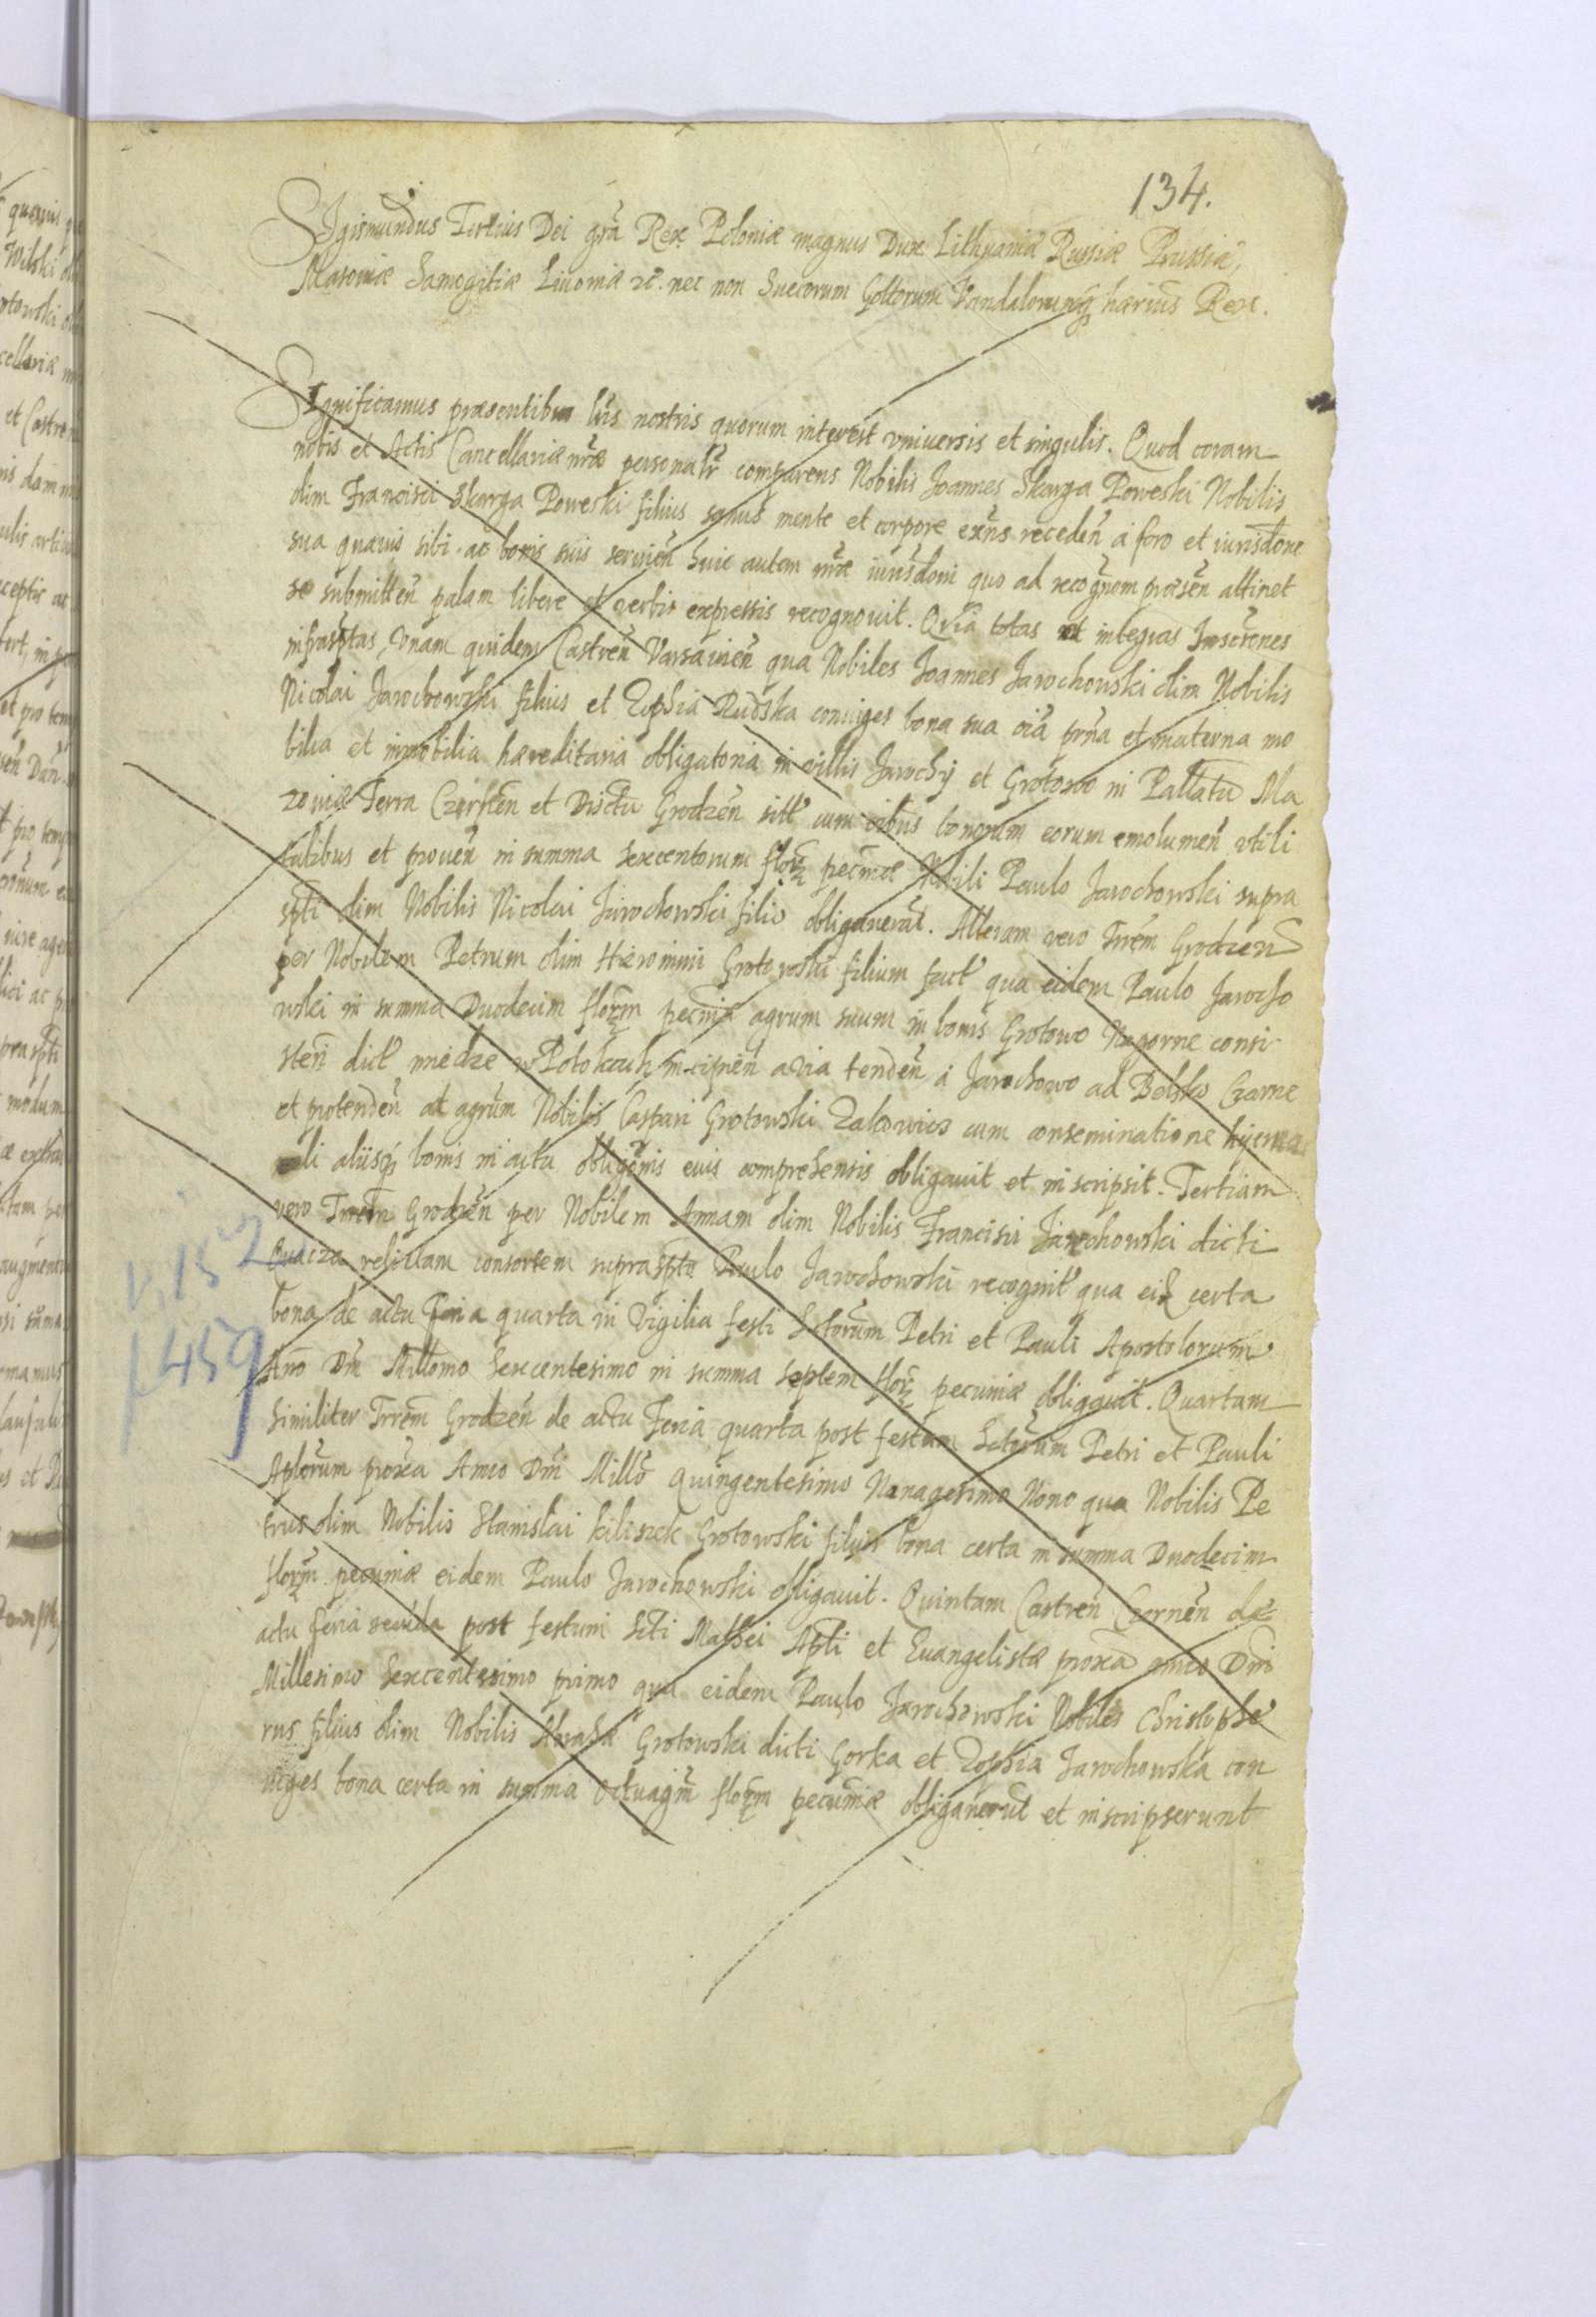 134.
Sigismundus Tertius Dei gra Rex Poloniæ magnus Dux Lithuaniæ Russiæ Prussiæ,
Masoviæ Samogitiæ Livoniæ etc. nec non Suecorum Gottorum Vandalorumq hærius Rex.
Significamus præsentibus lris nostris quorum interest vniuersis et singulis. Quod coram
nobis et Actis Cancellariæ nræ personalr comparens Nobilis Joannes Skarga Poweski Nobilis
olim Francisci Skarga Poweski filius sanus mente et corpore exns receden a foro et iurisdone
sua quauis sibi ac bonis suis seruien huic autem nræ iurisdoni quo ad recognom præsen attinet
se submitten palam libere et verbis expressis recognouit. Quia totas et integras Inscrones
infrasptas, Vnam quidem Castren Varsauien qua Nobiles Joannes Jarochowski olim Nobilis
Nicolai Jarochowski filius et Zophia Rudska coniuges bona sua oia prna et materna mo
bilia et immobilia hæreditaria obligatoria in villis Jarochy et Grotowo in Pallatu Ma
zouiæ Terra Czersten et Disctu Grodzen sitt cum oibus bonorum eorum emolumen vtili
tatibus et prouen in summa sexcentorum flor pecniæ Nobili Paulo Jarochowski supra
spti olim Nobilis Nicolai Jarochowski filio obligauerat. Alteram vero Trrem Grodzen
per Nobilem Petrum olim Hieronimi Grotowski filium fact qua eidem Paulo Jarocho
wski in summa Duodecim florm pecniæ agrum suum in bonis Grotowo Nagorne consi
sten dict miedze w Potokach incipien a via tenden a Jarochowo ad Belsko Czarne
et protenden ad agrum Nobilis Caspari Grotowski Zakowicz cum conseminatione hyema
li aliisq bonis in actu obligonis euis comprehensis obligauit et inscripsit. Tertiam
vero Trrem Grodzen per Nobilem Annam olim Nobilis Francisci Jarochowski dicti
relictam consortem suprascpto Paulo Jarochowski recognit qua eid certa
bona de actu Feria quarta in Vigilia festi Sctorum Petri et Pauli Apostolorum
Ano Dni Millomo Sexcentesimo in summa septem flor pecuniæ obligauit. Quartam
Similiter Trrem Grodzen de actu Feria quarta post festum Sctorum Petri et Pauli
Aplorum proxa Anno Dni Millo quingentesimo Nonagesimo Nono qua Nobilis Pe
trus olim Nobilis Stanislai kiliszek Grotowski filius bona certa in summa Duodecim
florm pecuniæ eidem Paulo Jarochowski obligauit. Quintam Castren Czernen de
actu feria secuda post festum Scti Mathei Apli et Euangelistæ proxa anno Dni
Millesimo Sexcentesimo primo qua eidem Paulo Jarochowski Nobiles Christopho
rus filius olim Nobilis Abrahæ Grotowski dicti Gorka et Zophia Jarochowska con
iuges bona certa in summa Octuagin florm pecuniæ obligauerut et inscripserunt
V, 152
f. 459